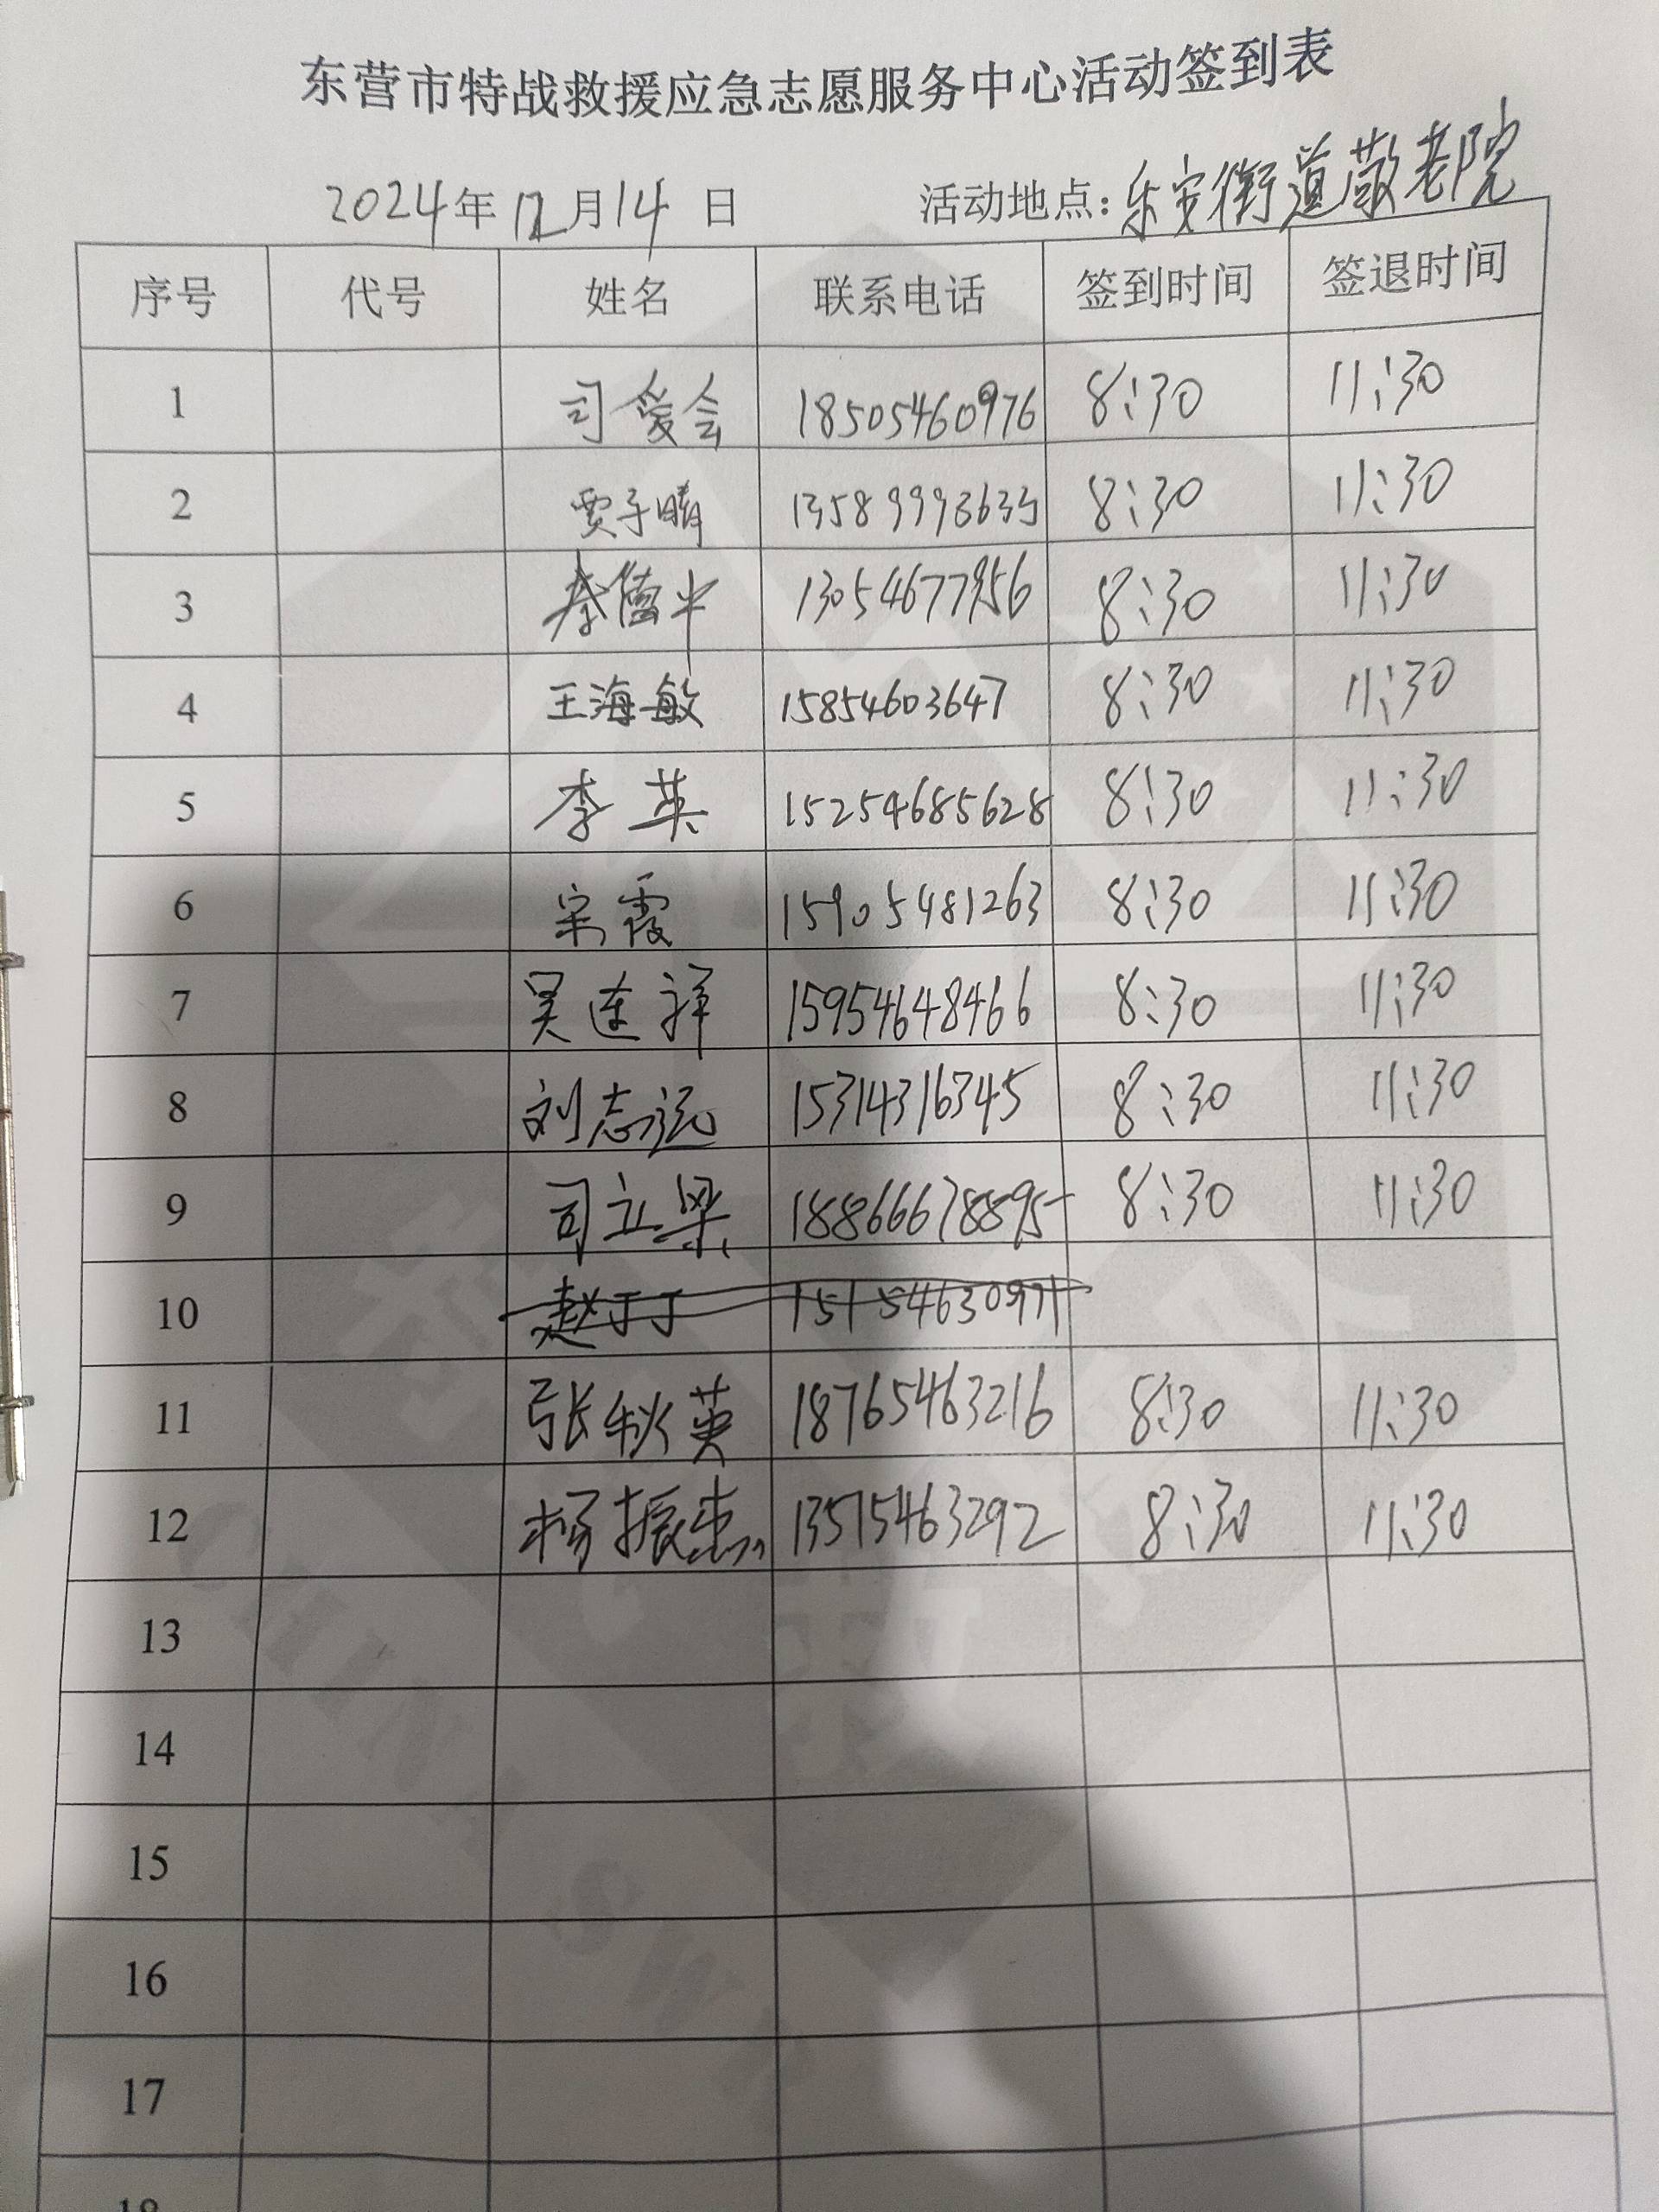 东营市特战救援应急志愿服务中心活动签到表
2024年12月14日 活动地点:乐安街道敬老院
序号 代号 姓名 联系电话 签到时间 签退时间
1 司爱会 18505460976 8:30 11:30
2 贾子晴 13589993633 8:30 11:30
3 秦德中 13054677956 8:30 11:30
4 王海敏 15854603647 8:30 11:30
5 李英 15254685628 8:30 11:30
6 宋霞 15905481263 8:30 11:30
7 吴连祥 15954648466 8:30 11:30
8 刘志远 15314316345 8:30 11:30
9 司立梁 18866678895 8:30 11:30
10 赵丁丁 15154630971
11 张秋英 18765463216 8:30 11:30
12 杨振杰 13515463292 8:30 11:30
13
14
15
16
17
18